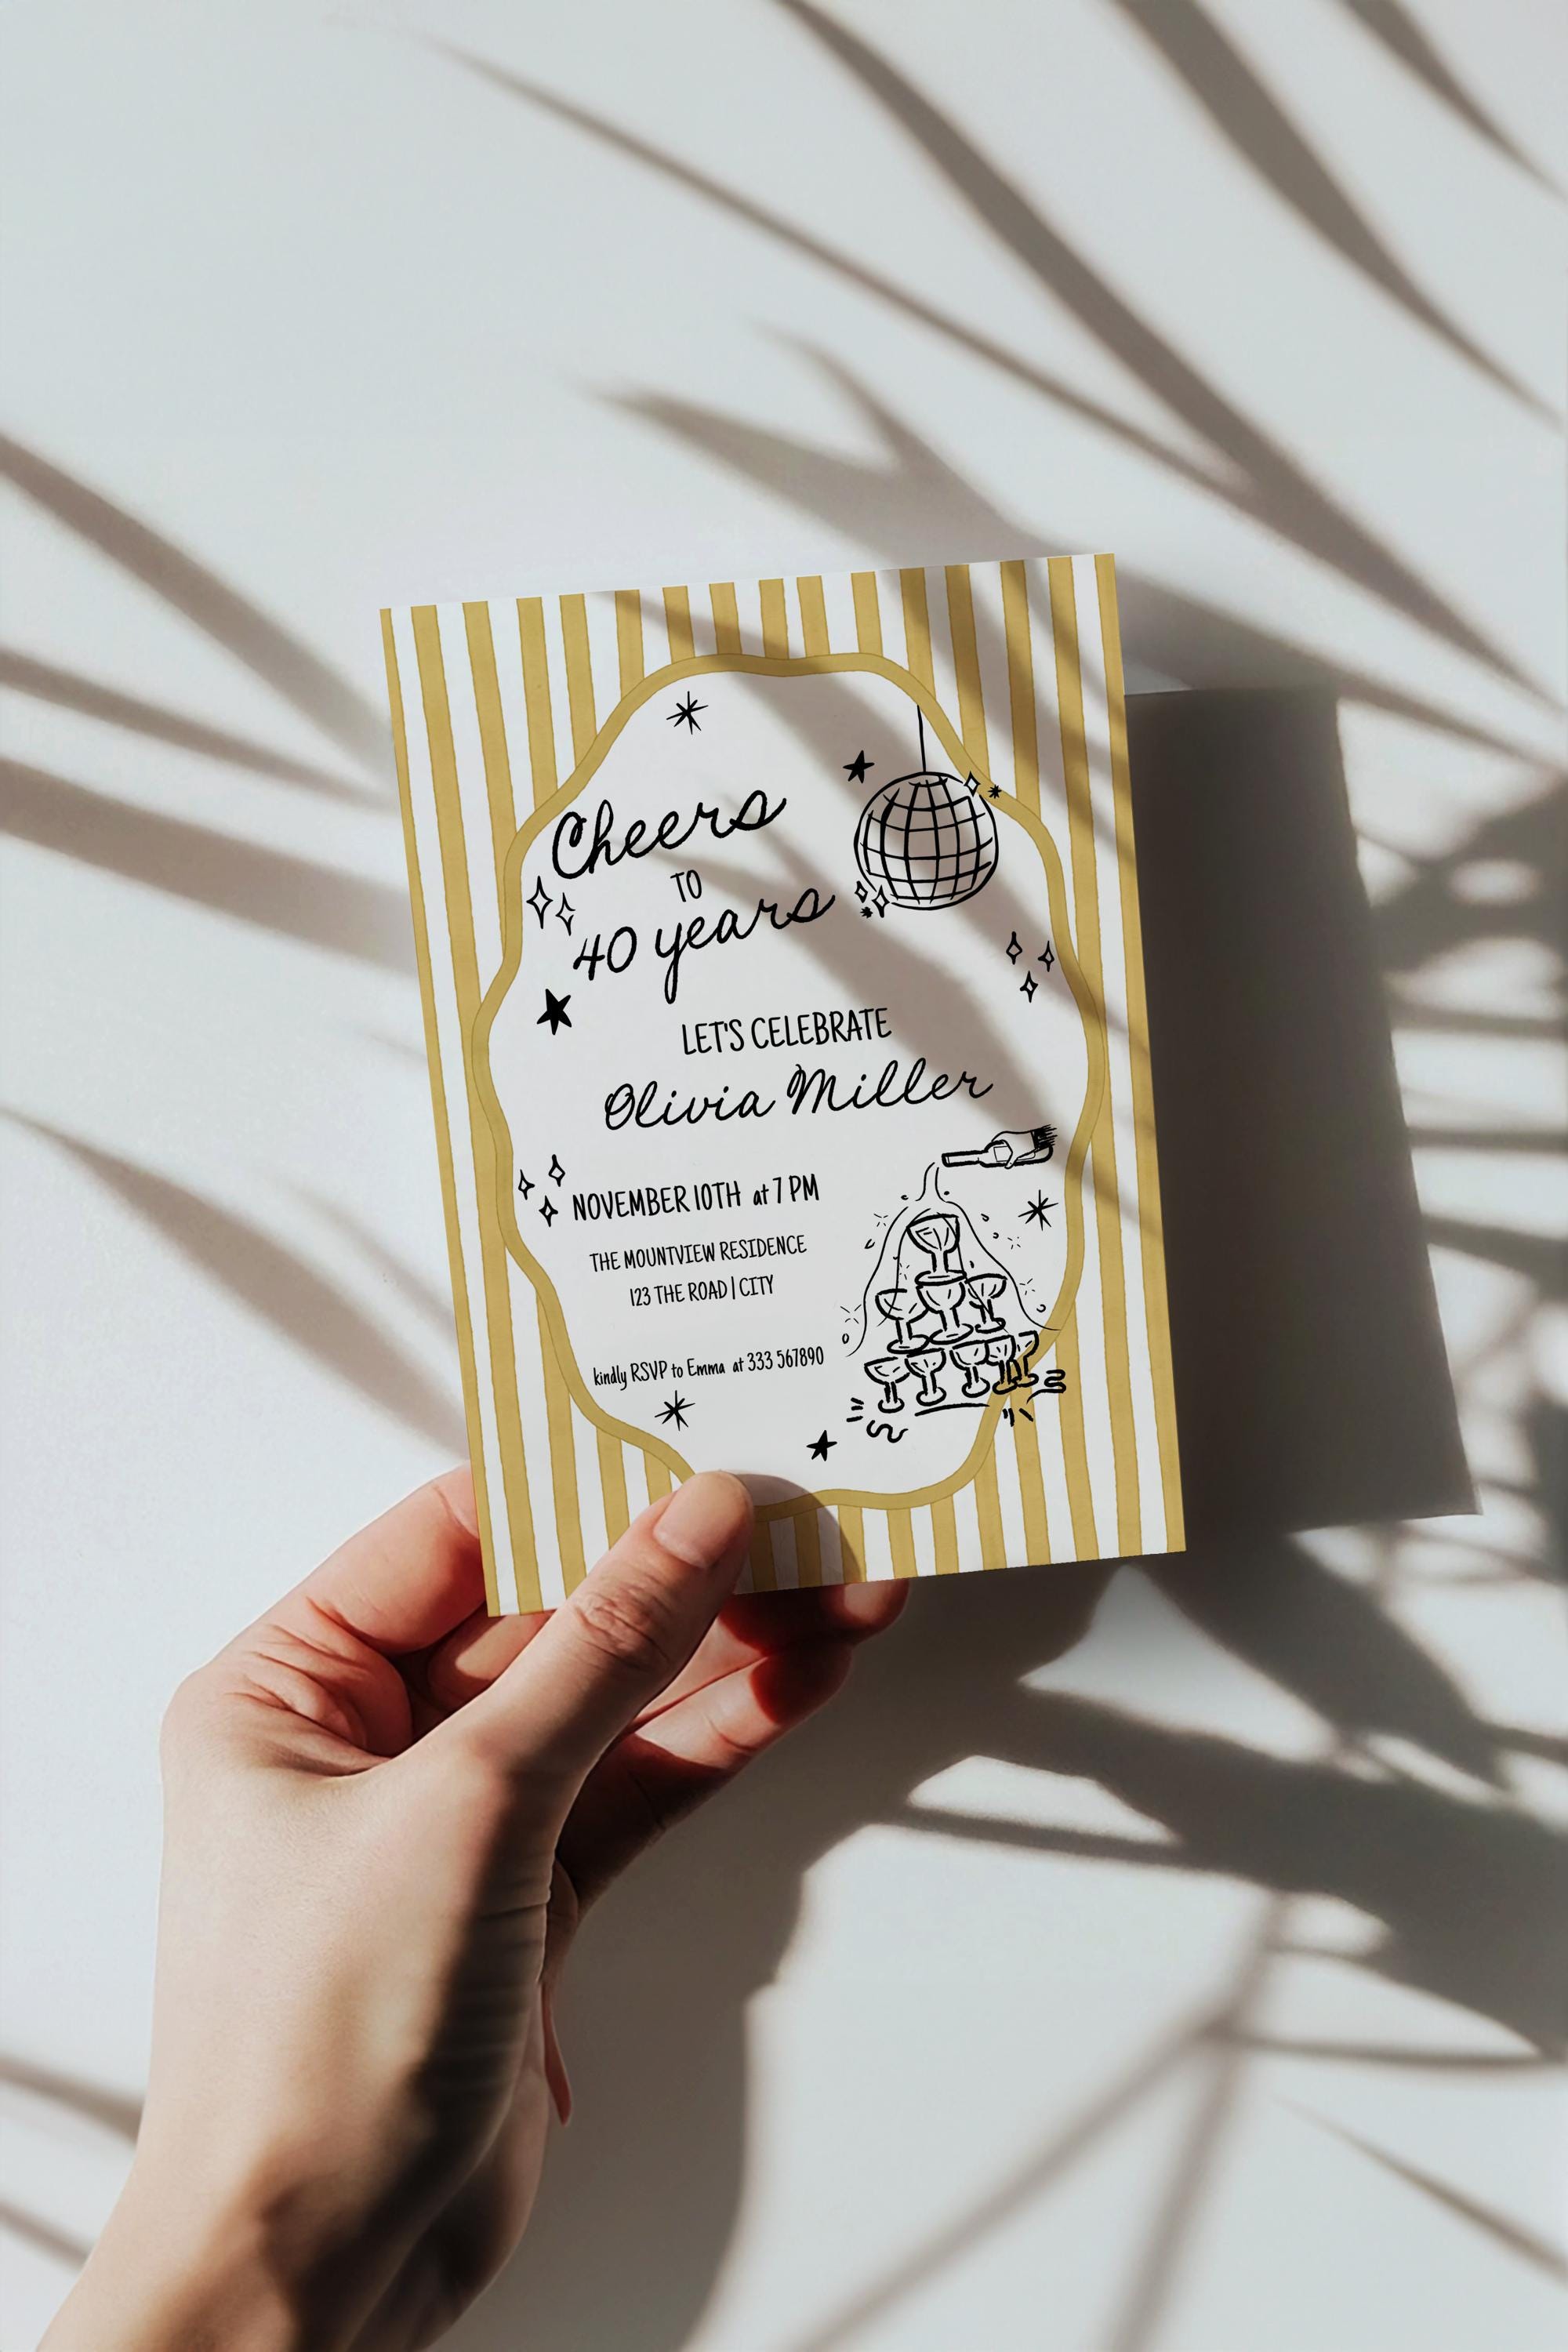 Cheers
TO
40 years
LET'S CELEBRATE
Olivia Miller
NOVEMBER 10TH at 7 PM
THE MOUNTVIEW RESIDENCE
123 THE ROAD | CITY
kindly RSVP to Emma at 333 567890